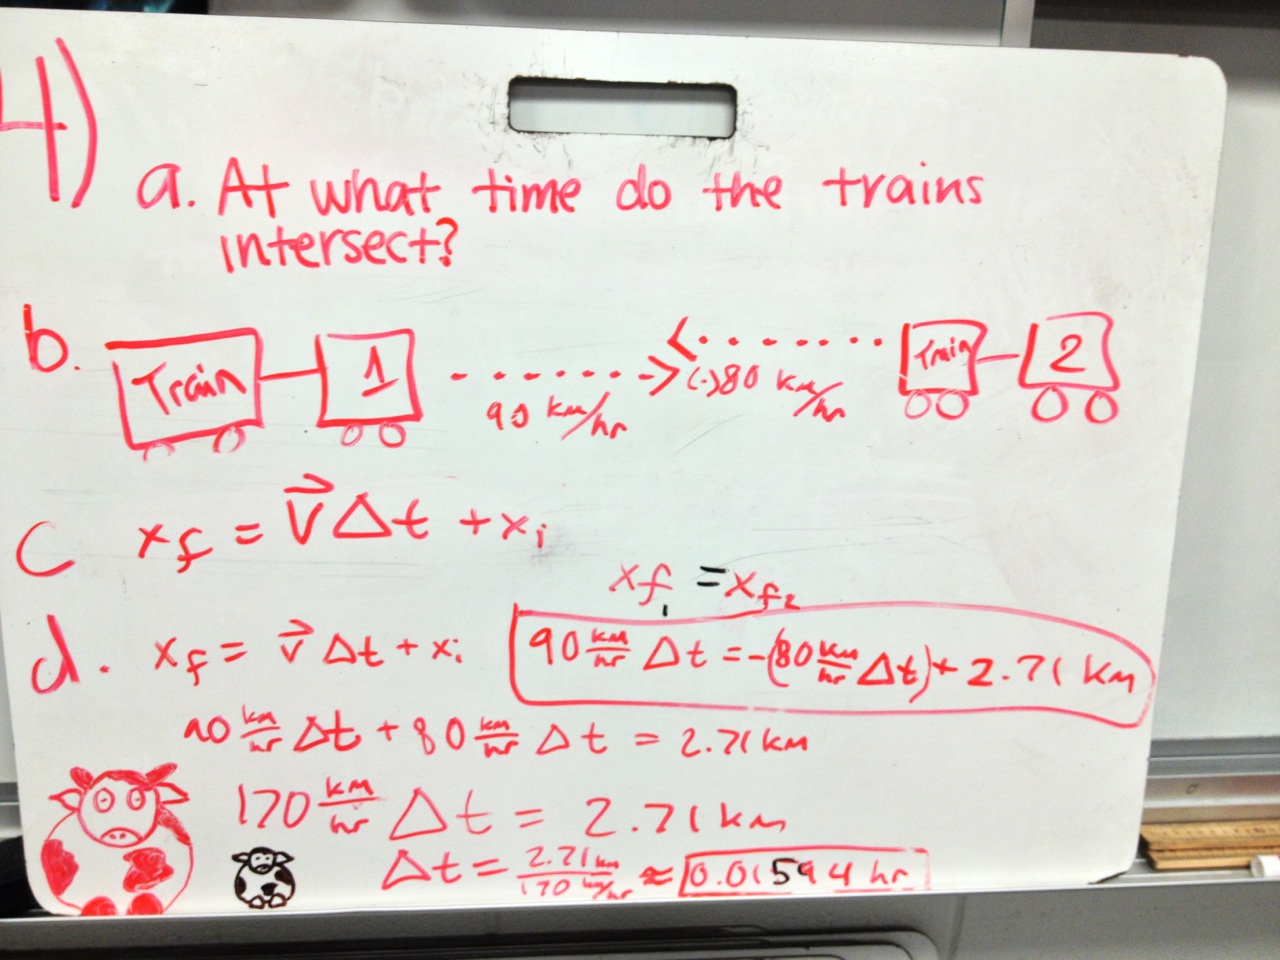 4)
a. At what time do the trains
intersect?
b. Train 1 90 km/hr (-)80 km/hr Train 2
c x_f = v⃗ Δt + x_i
x_f₁ = x_f₂
d. x_f = v⃗ Δt + x_i 90 km/hr Δt = -(80 km/hr Δt) + 2.71 km
90 km/hr Δt + 80 km/hr Δt = 2.71 km
170 km/hr Δt = 2.71 km
Δt = 2.71 km / 170 km/hr ≈ 0.01594 hr